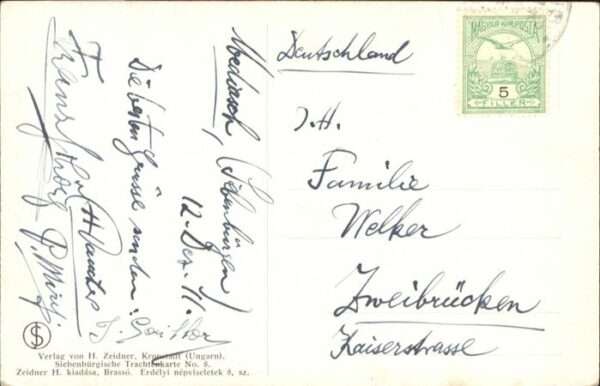 Mediasch, (Siebenbürgen)
12. Dez. 11.
Die besten Grüsse senden:
Franz
Deutschland
MAGYAR KIR. POSTA
5
FILLÉR
I. H.
Familie
Welker
Zweibrücken
Kaiserstrasse
Verlag von H. Zeidner, Kronstadt (Ungarn).
Siebenbürgische Trachtenkarte No. 8.
Zeidner H. kiadása, Brassó. Erdélyi népviseletek 8. sz.